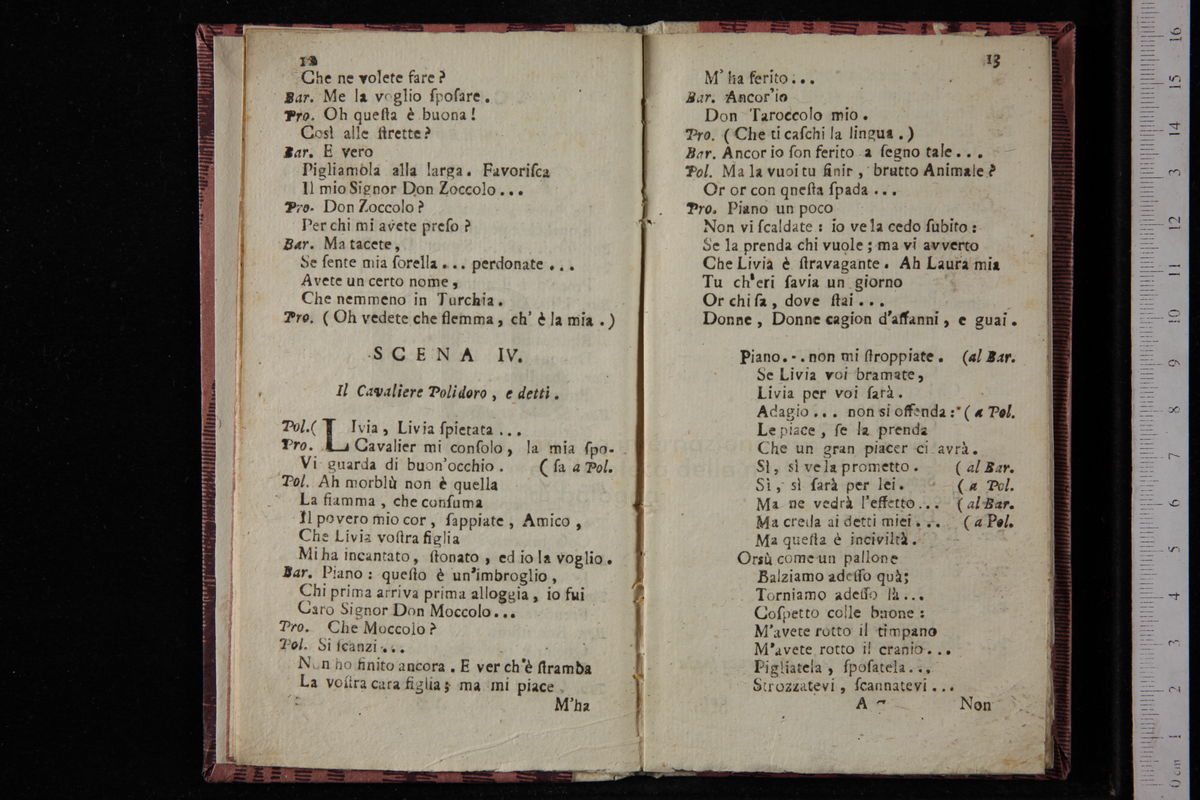 12
Che ne volete fare?
Bar. Me la voglio ſpoſare.
Pro. Oh queſta è buona!
Così alle ſtrette?
Bar. E vero
Pigliamola alla larga. Favoriſca
Il mio Signor Don Zoccolo...
Pro. Don Zoccolo?
Per chi mi avete preſo?
Bar. Ma tacete,
Se ſente mia ſorella... perdonate...
Avete un certo nome,
Che nemmeno in Turchia.
Pro. (Oh vedete che flemma, ch' è la mia.)
SCENA IV.
Il Cavaliere Polidoro, e detti.
Pol.( LIvia, Livia ſpietata...
Pro. Cavalier mi conſolo, la mia ſpo-
Vi guarda di buon'occhio. (ſa a Pol.
Pol. Ah morblù non è quella
La fiamma, che conſuma
Il povero mio cor, ſappiate, Amico,
Che Livia voſtra figlia
Mi ha incantato, ſtonato, ed io la voglio.
Bar. Piano: queſto è un'imbroglio,
Chi prima arriva prima alloggia, io fui
Caro Signor Don Moccolo...
Pro. Che Moccolo?
Pol. Si ſcanzi...
Non ho finito ancora. E ver ch'è ſtramba
La voſtra cara figlia; ma mi piace
M'ha
13
M' ha ferito...
Bar. Ancor'io
Don Taroccolo mio.
Pro. (Che ti caſchi la lingua.)
Bar. Ancor io ſon ferito a ſegno tale...
Pol. Ma la vuoi tu finir, brutto Animale?
Or or con qneſta ſpada...
Pro. Piano un poco
Non vi ſcaldate: io ve la cedo ſubito:
Se la prenda chi vuole; ma vi avverto
Che Livia è ſtravagante. Ah Laura mia
Tu ch'eri ſavia un giorno
Or chi ſa, dove ſtai...
Donne, Donne cagion d'affanni, e guai.
Piano... non mi ſtroppiate. (al Bar.
Se Livia voi bramate,
Livia per voi ſarà.
Adagio... non si offenda: (a Pol.
Le piace, ſe la prenda
Che un gran piacer ci avrà.
Sì, sì ve la prometto. (al Bar.
Sì, sì ſarà per lei. (a Pol.
Ma ne vedrà l'effetto... (al Bar.
Ma creda ai detti miei... (a Pol.
Ma queſta è inciviltà.
Orsù come un pallone
Balziamo adeſſo quà;
Torniamo adeſſo là...
Coſpetto colle buone:
M'avete rotto il timpano
M'avete rotto il cranio...
Pigliatela, ſpoſatela...
Strozzatevi, ſcannatevi...
A 7 Non